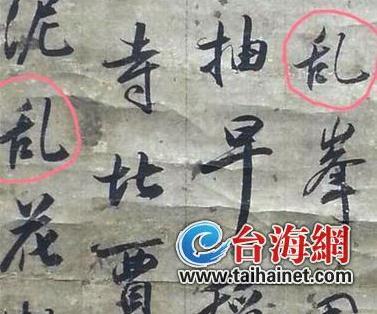 乱峯
抽早
寺北賈
泥乱花
台海網
www.taihainet.com